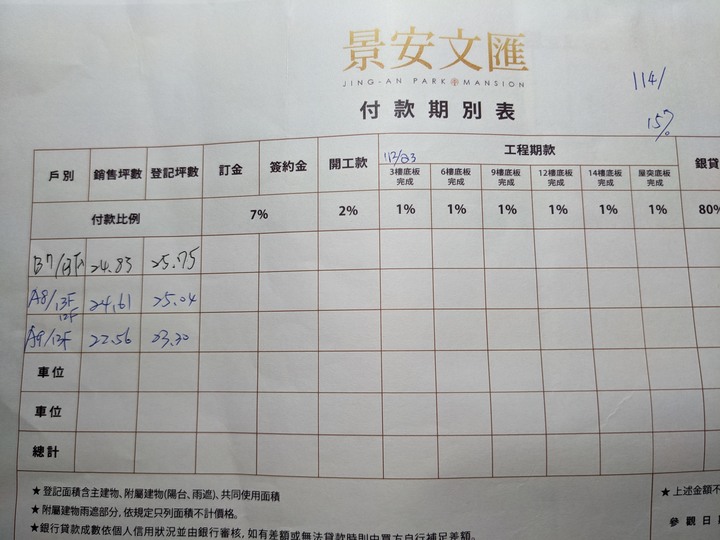 景安文匯
JING-AN PARK MANSION
付款期別表
114/
15%
戶別 銷售坪數 登記坪數 訂金 簽約金 開工款 工程期款 銀貸
3樓底板完成 6樓底板完成 9樓底板完成 12樓底板完成 14樓底板完成 屋突底板完成
付款比例 7% 2% 1% 1% 1% 1% 1% 1% 80%
24.83 25.75
A8/13F 24.61 25.04
12F
A9/13F 22.56 23.30
車位
車位
總計
★登記面積含主建物、附屬建物(陽台、雨遮)、共同使用面積
★附屬建物雨遮部分,依規定只列面積不計價格。
★銀行貸款成數依個人信用狀況並由銀行審核,如有差額或無法貸款時則由買方自行補足差額。
★上述金額不
參觀日